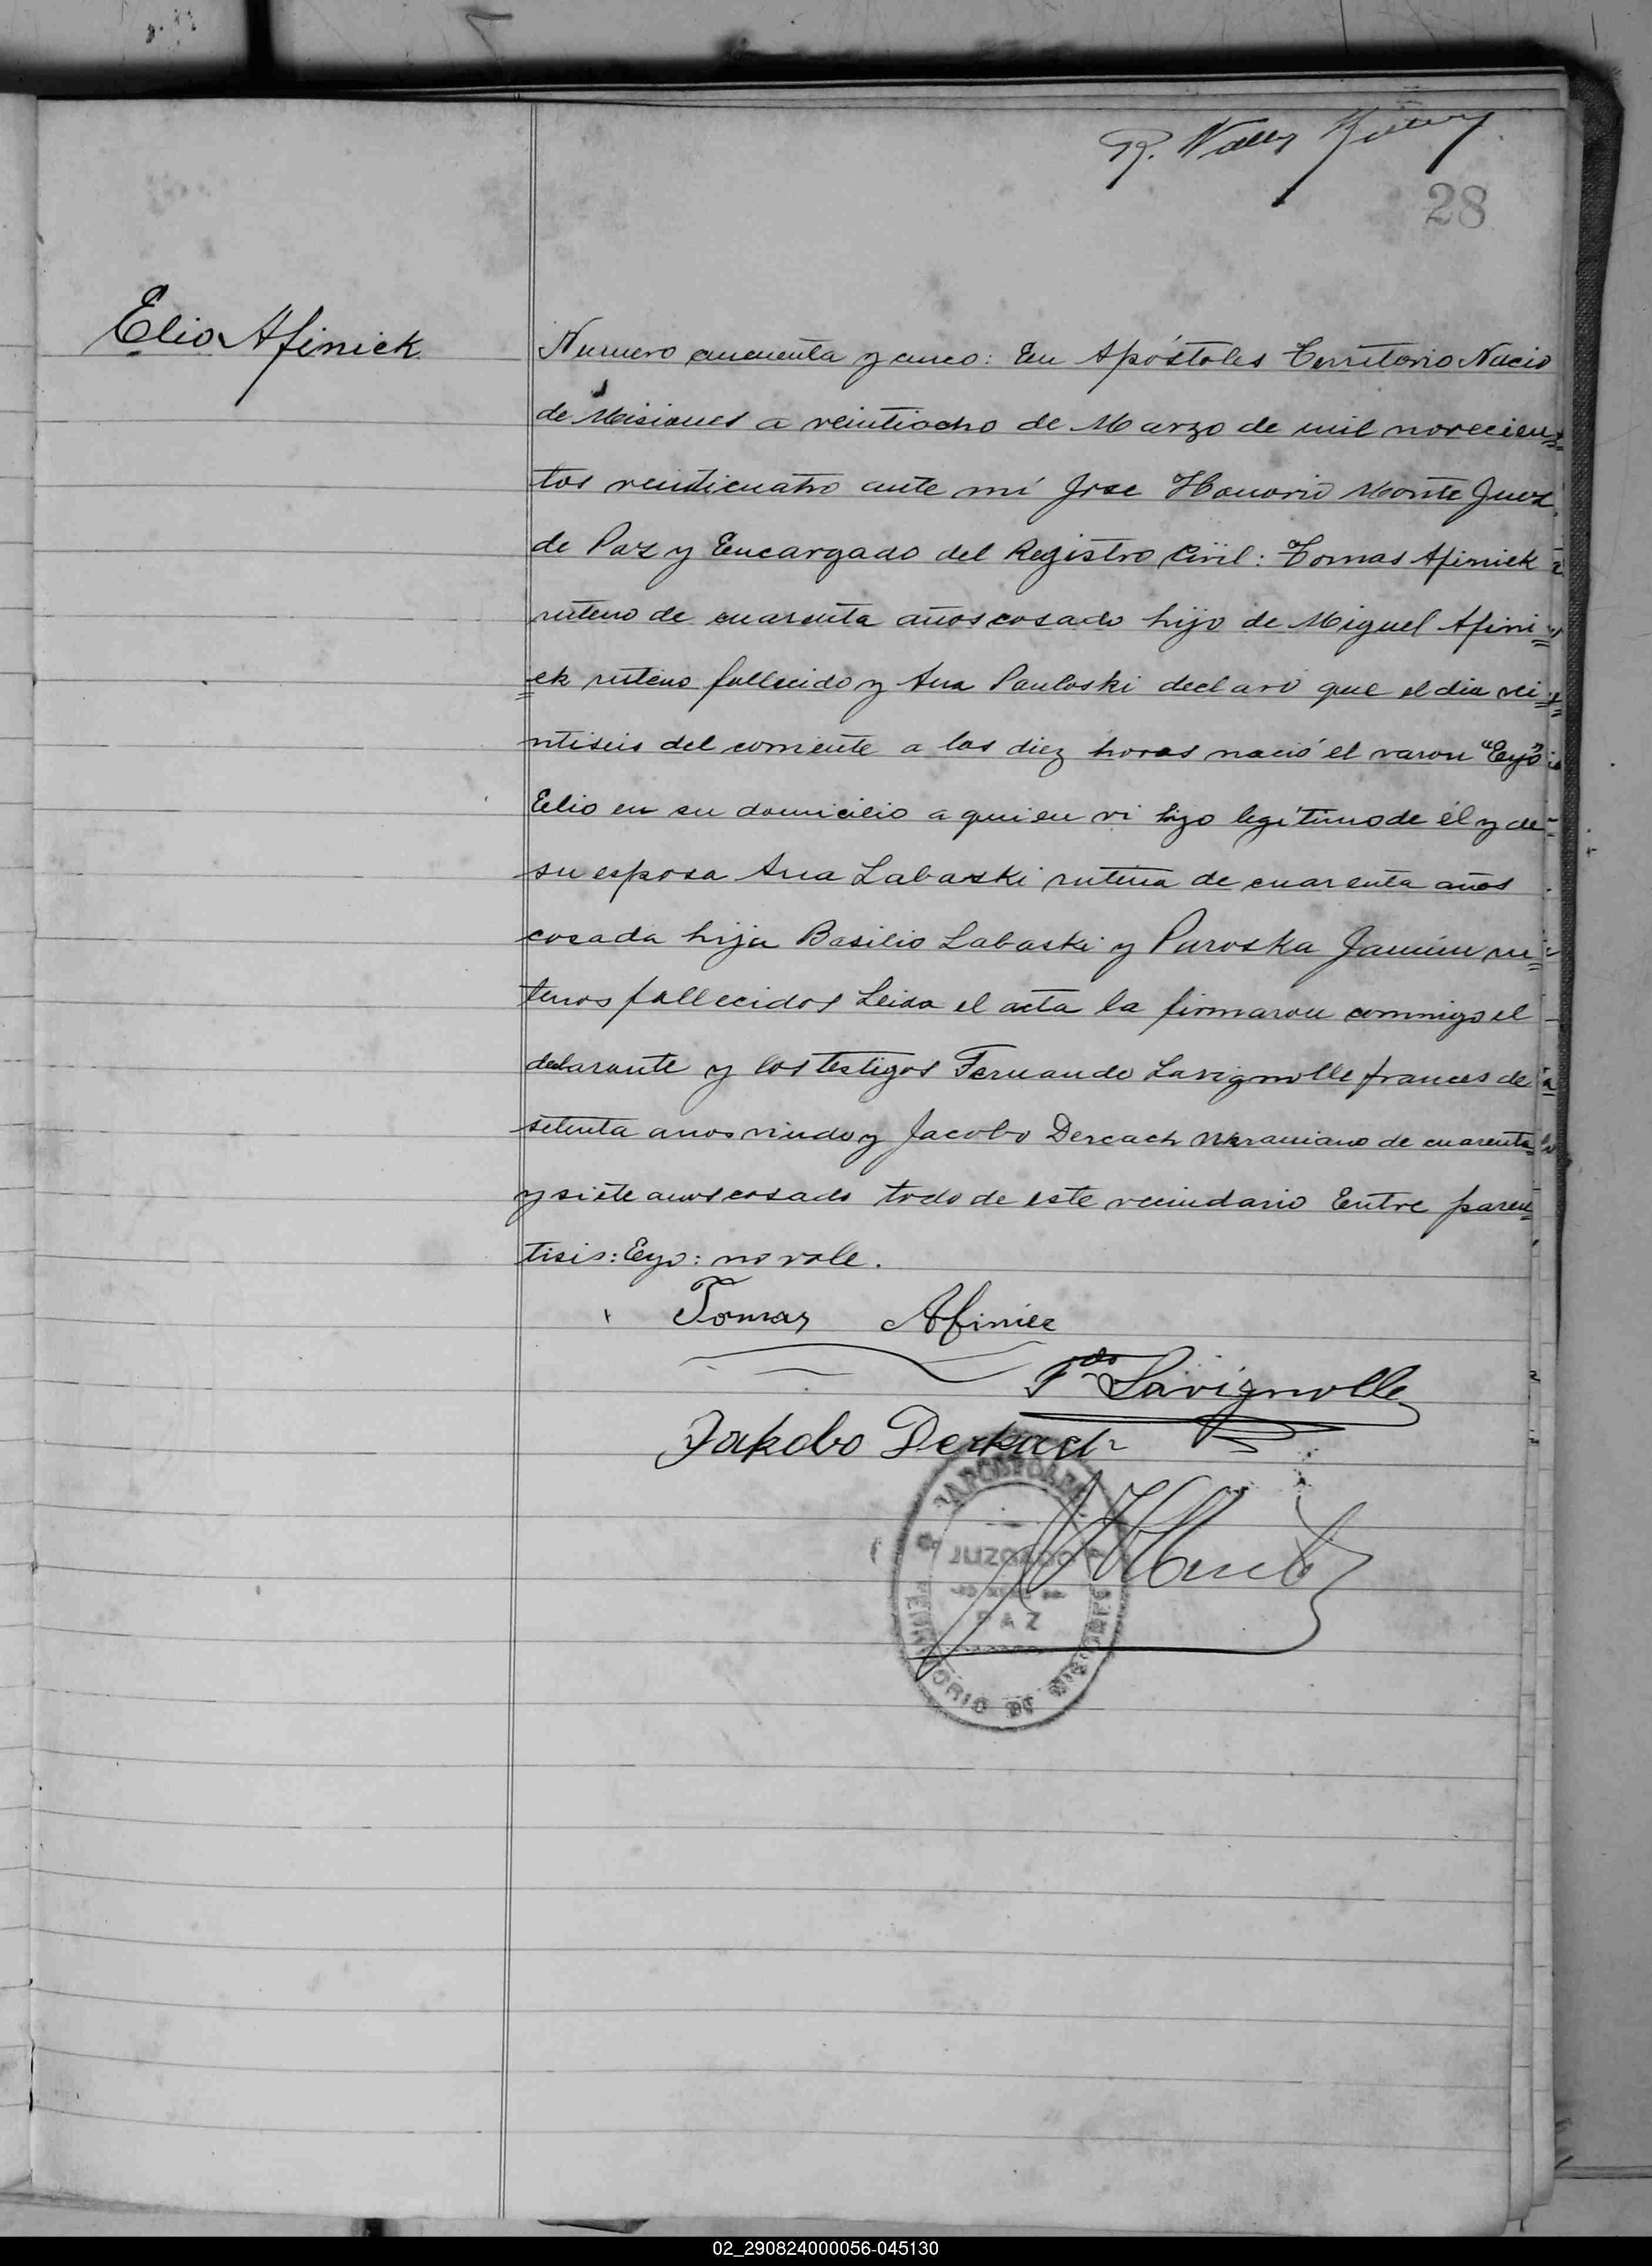 28
Elio Afiniek
Numero cincuenta y cinco: En Apóstoles Territorio Nacio
de Misiones a veintiocho de Marzo de mil novecien=
tos veinticuatro ante mí Jose Honorio Monte Juez
de Paz y Eencargado del Registro Civil: Tomas Afiniek
ruteno de cuarenta años casado hijo de Miguel Afini=
ek ruteno fallecido y Ana Pauloski declaró que el dia vei=
ntiseis del corriente a las diez horas nació el varon "Eeyo"
Eelio en su domicilio a quien vi hijo legítimo de él y de
su esposa Ana Labaski rutena de cuarenta años
casada hija Basilio Labaski y Paroska ru=
tenos fallecidos Leida el acta la firmaron conmigo el
declarante y los testigos Fernando Lavignolle frances de
setenta anos viudo y Jacobo Dercach Ukraniano de cuarenta
y siete anos casado todo de este vecindario Entre paren=
tisis: Eeyo: no vale.
Tomas Afiniec
Fdo Lavignolle
Jakobo Derkach
JUZGADO
DE
PAZ
TERRITORIO DE MISIONES
02_290824000056-045130